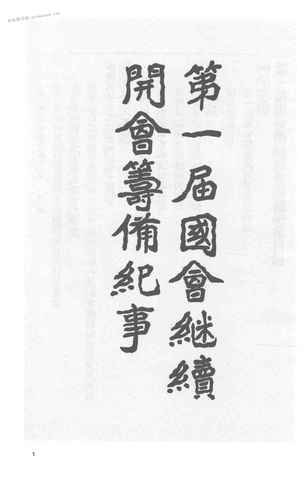 第一届國會継續
開會籌備紀事
1